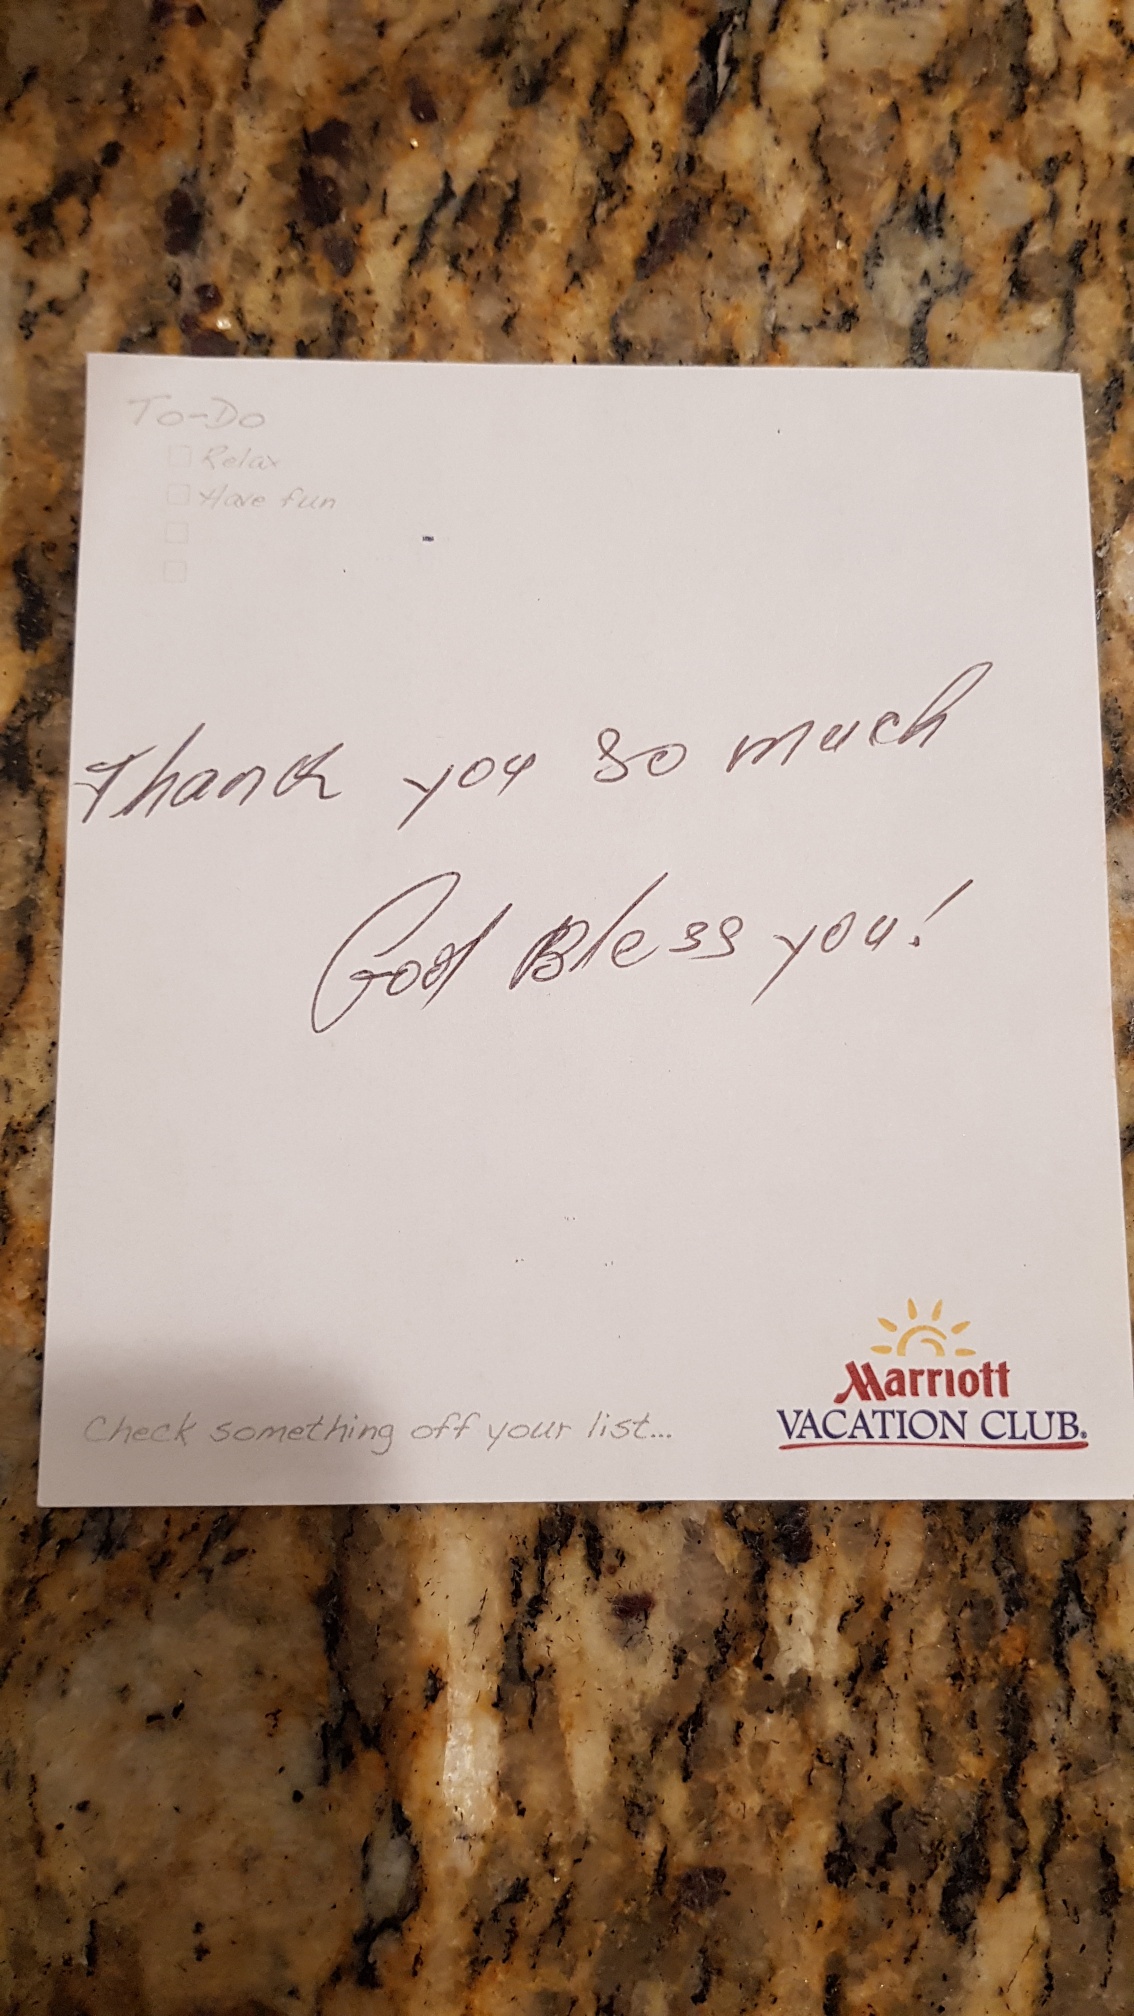 To-Do
Relax
Have fun
Thank you so much
God Bless you!
Marriott
VACATION CLUB®
Check something off your list...